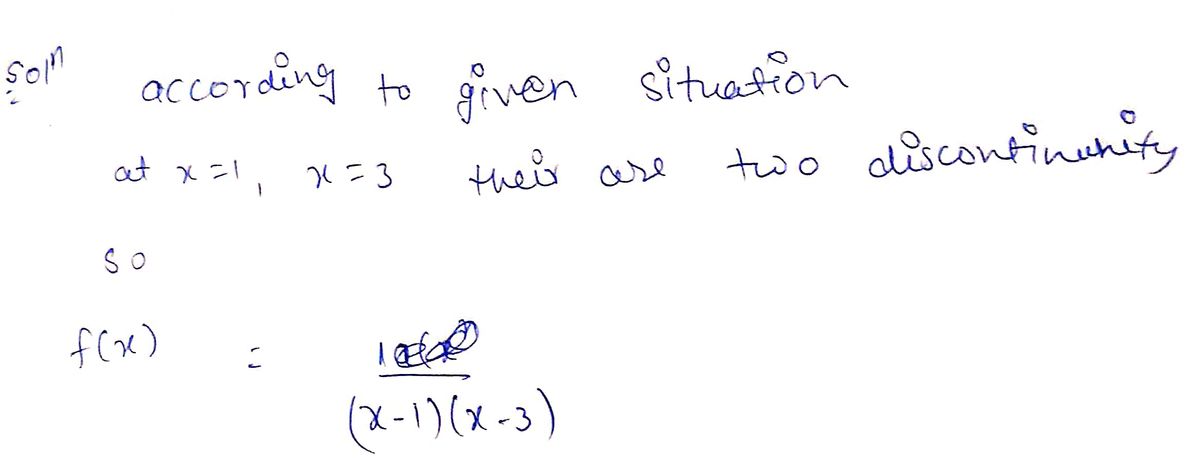 Soln according to given situation
at x=1, x=3 their are two discontinunity
so
f(x) = 1
(x-1)(x-3)